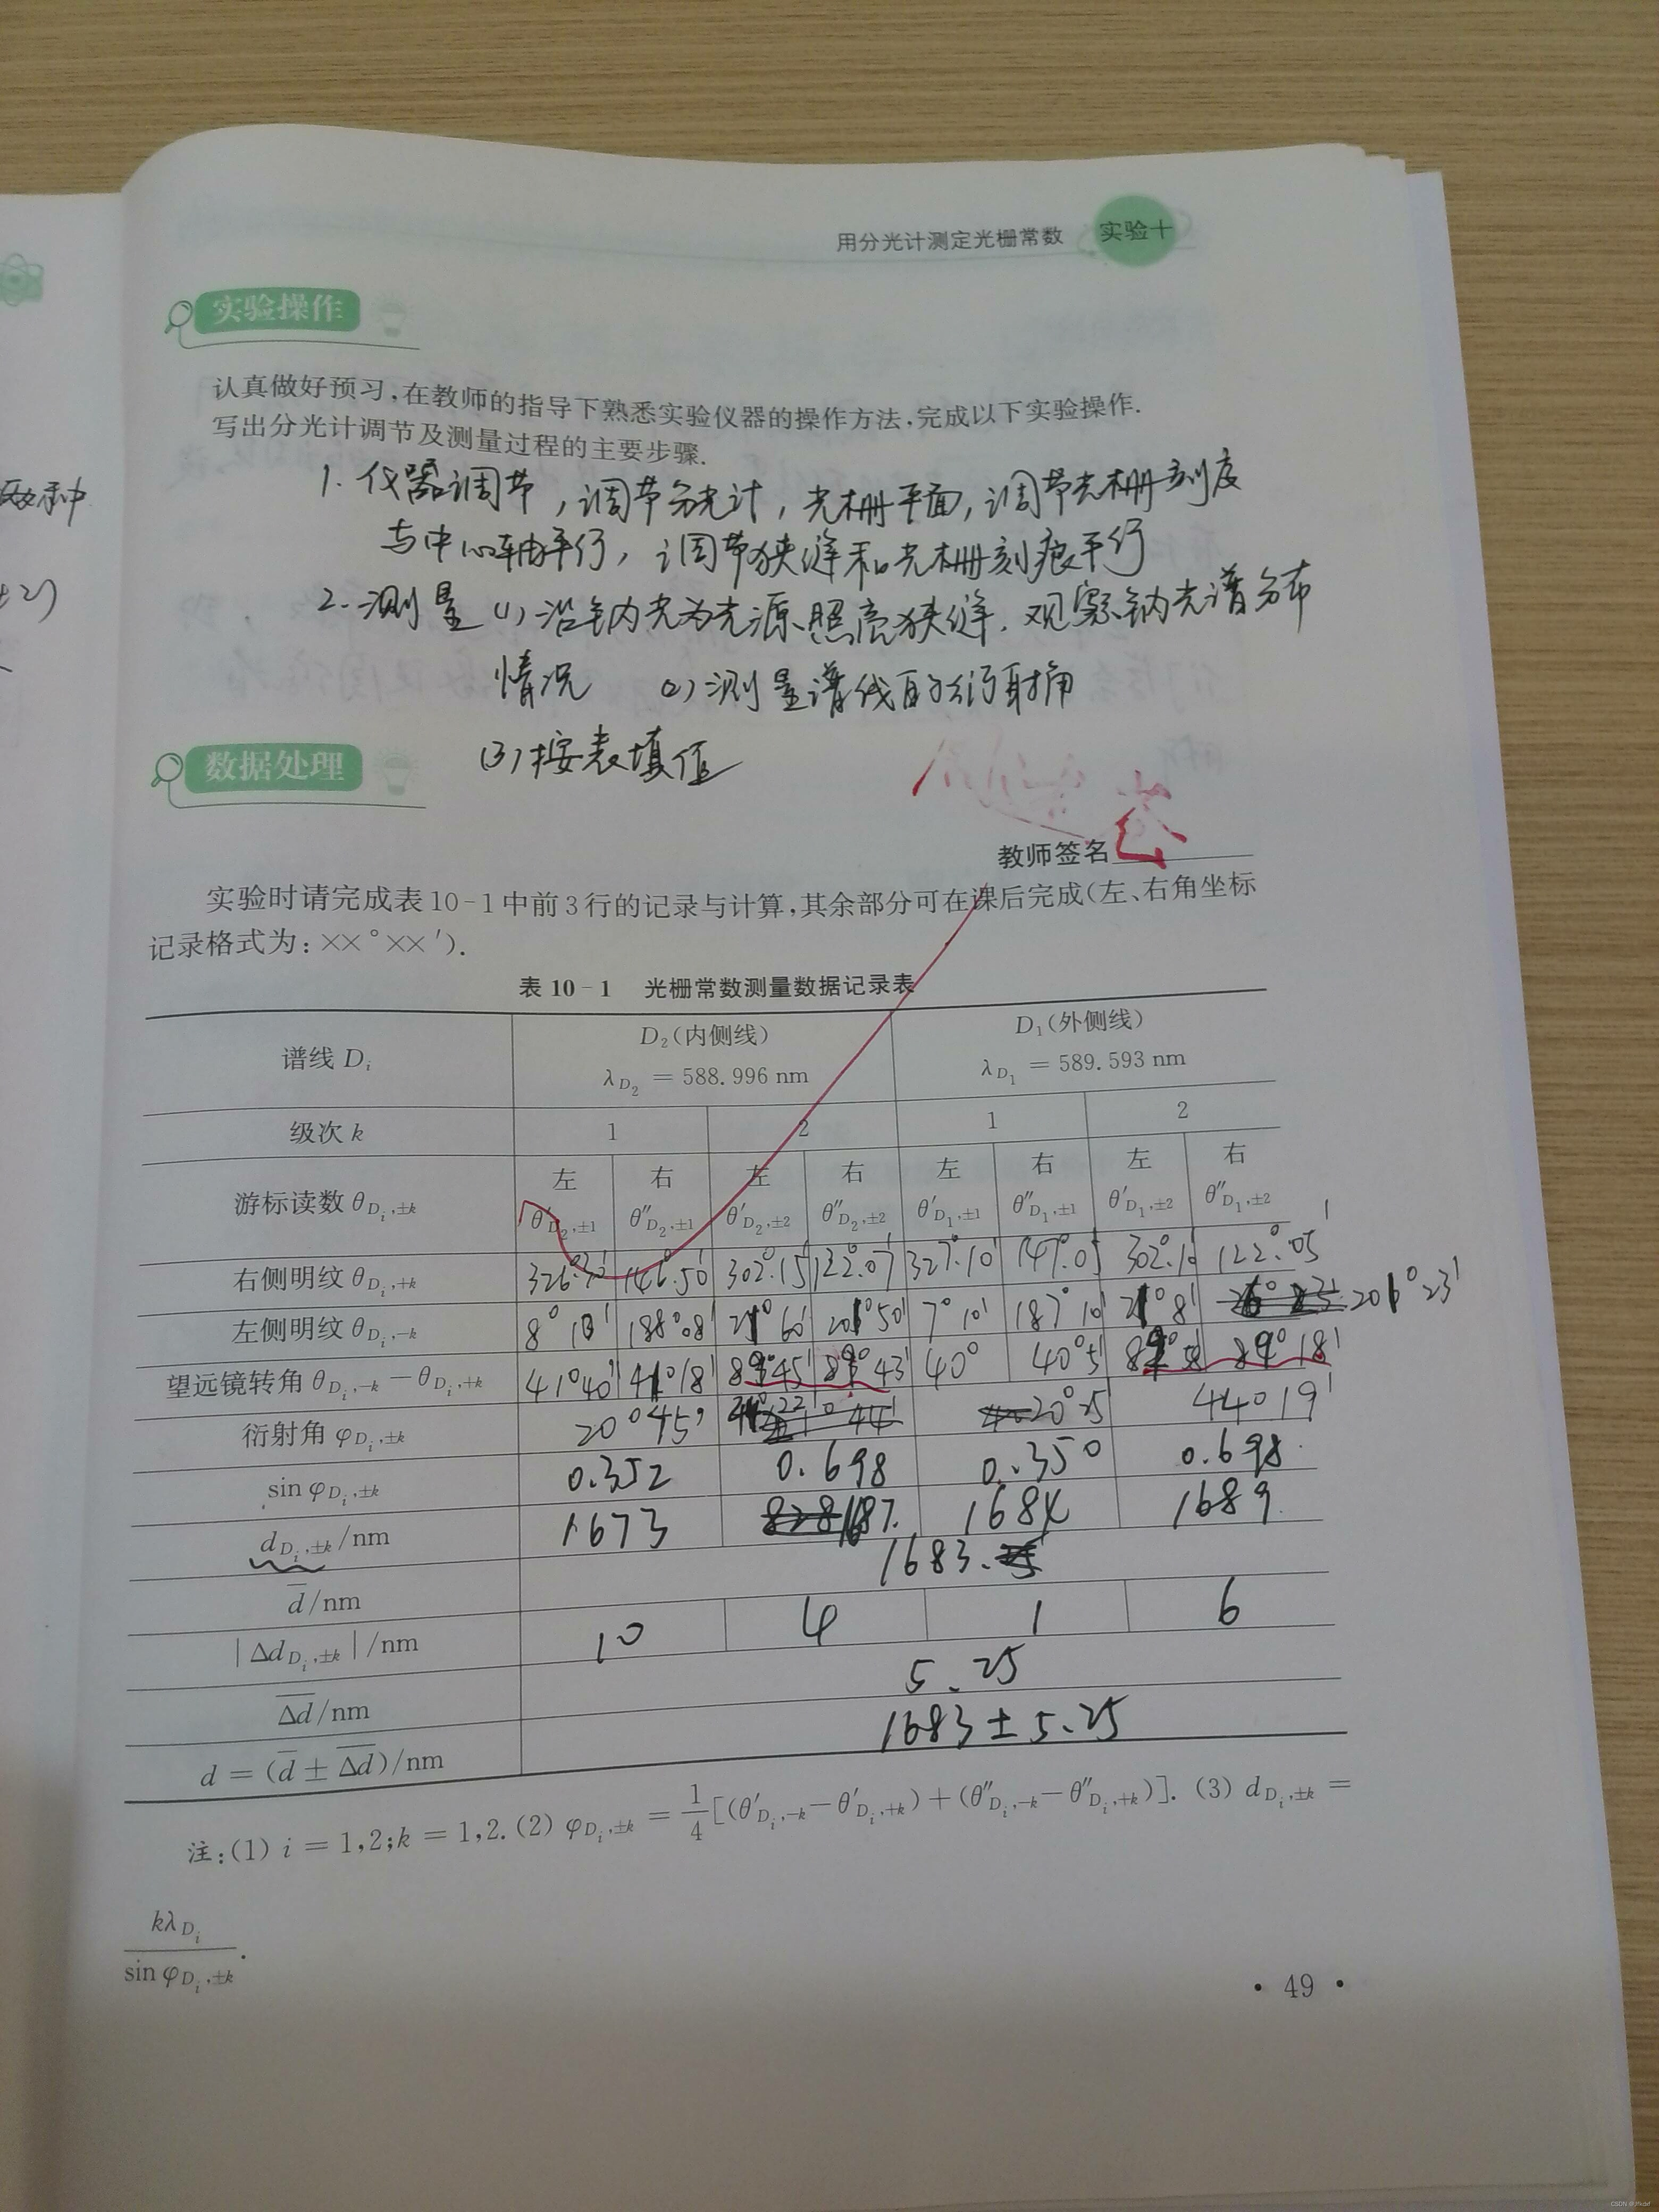 用分光计测定光栅常数 实验十
实验操作
认真做好预习,在教师的指导下熟悉实验仪器的操作方法,完成以下实验操作.
写出分光计调节及测量过程的主要步骤.
1. 仪器调节,调节分光计,光栅平面,调节光栅刻度
与中心轴平行,调节狭缝和光栅刻痕平行
2. 测量 (1) 沿钠光为光源、照亮狭缝.观察钠光谱分布
情况 (2) 测量谱线的衍射角
(3) 按表填值
数据处理
教师签名
实验时请完成表10-1中前3行的记录与计算,其余部分可在课后完成(左、右角坐标
记录格式为:××°××′).
表 10-1 光栅常数测量数据记录表
谱线 Dᵢ D₂(内侧线) D₁(外侧线)
λD₂ = 588.996 nm λD₁ = 589.593 nm
级次 k 1 2 1 2
左 右 左 右 左 右 左 右
游标读数 θDᵢ,±k θ′D₂,±1 θ″D₂,±1 θ′D₂,±2 θ″D₂,±2 θ′D₁,±1 θ″D₁,±1 θ′D₁,±2 θ″D₁,±2
右侧明纹 θDᵢ,+k 146°.50′ 302°.15′ 122°.07′ 327°.10′ 147°.05 302°.10 122°.05′
左侧明纹 θDᵢ,-k 8°10′ 188°08′ 201°50′ 7°10′ 187°10′ 21°8′ 206°23′
望远镜转角 θDᵢ,-k − θDᵢ,+k 41°40′ 41°18′ 89°45′ 89°43′ 40° 40°5′ 89°18′
衍射角 φDᵢ,±k 20°45′ 20°25′ 44°19′
sin φDᵢ,±k 0.352 0.698 0.350 0.698
dDᵢ,±k/nm 1673 1687. 1684 1689.
d̄/nm 1683.
|ΔdDᵢ,±k|/nm 10 4 1 6
Δd̄/nm 5.25
d = (d̄ ± Δd̄)/nm 1683±5.25
注:(1) i = 1,2;k = 1,2. (2) φDᵢ,±k = 1/4[(θ′Dᵢ,-k − θ′Dᵢ,+k) + (θ″Dᵢ,-k − θ″Dᵢ,+k)]. (3) dDᵢ,±k =
kλDᵢ/sin φDᵢ,±k.
· 49 ·